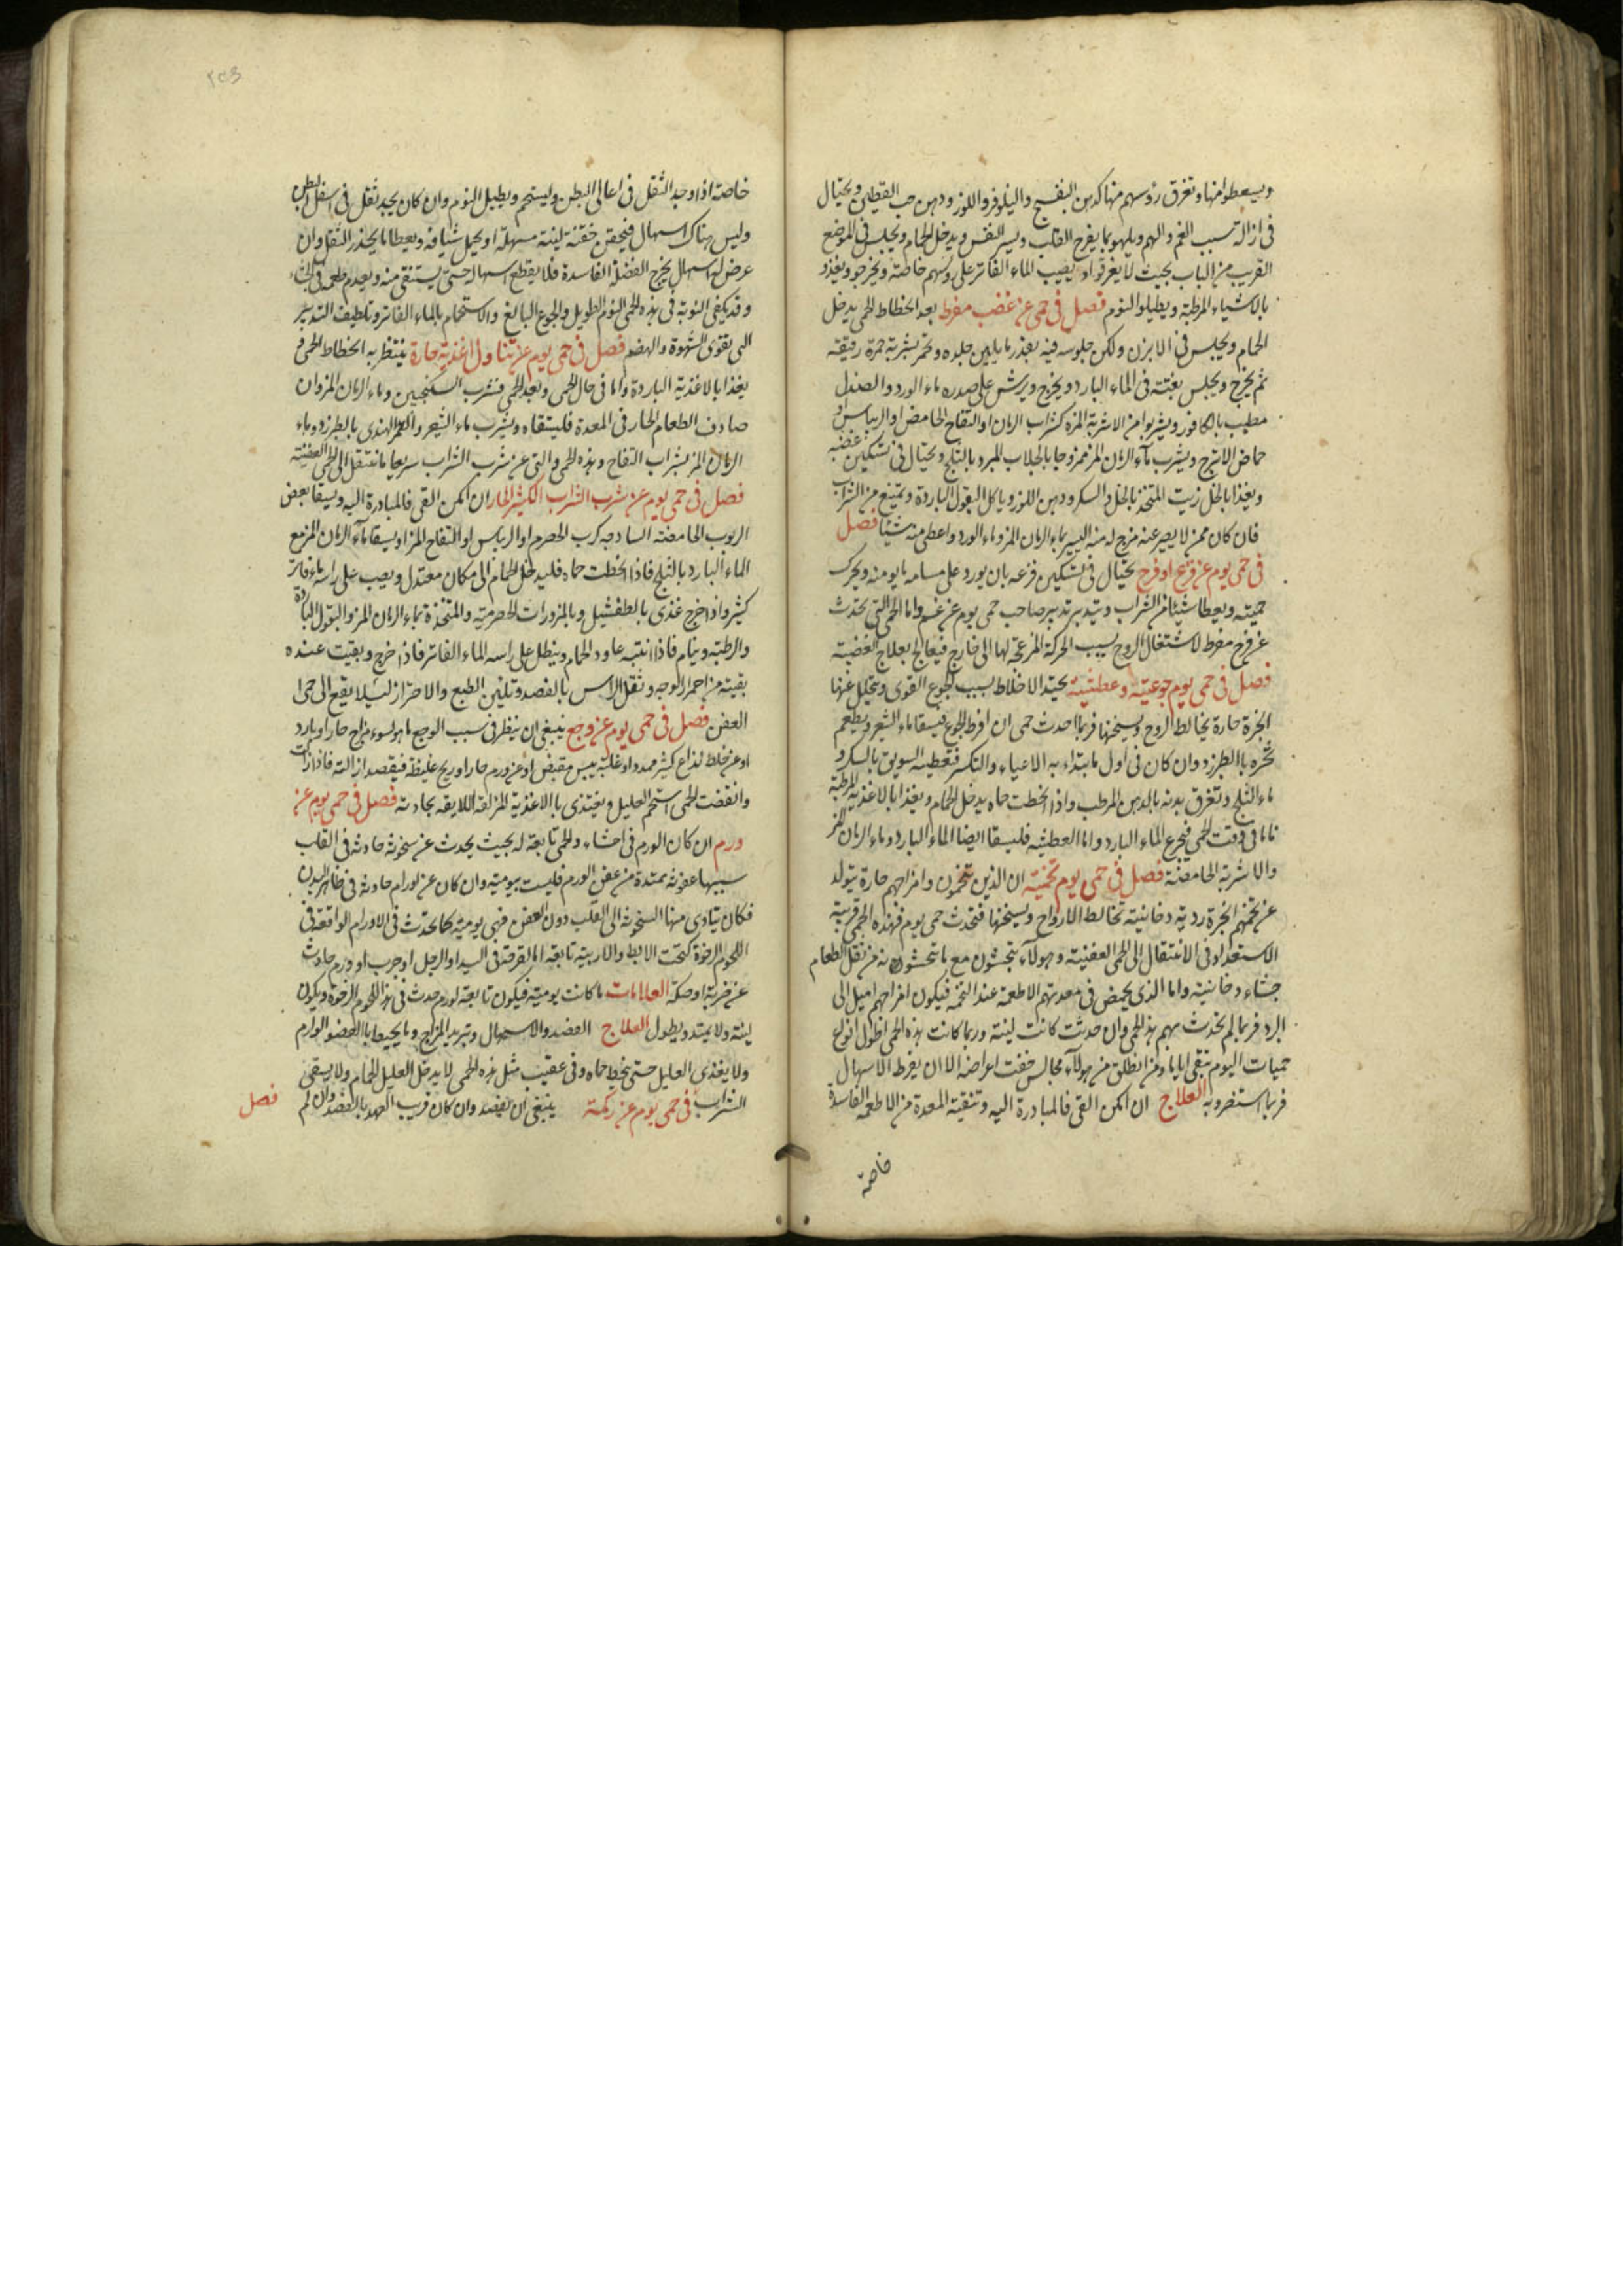 ويسعطوا منها وتغرق رؤسهم منها كدهن البنفسج والنيلوفر واللوز ودهن حب القطين ويحتال
فى ازالة سبب الغم والهم ويلهو بما يفرح القلب ويسر النفس ويدخل الحمام ويجلس فى الموضع
القريب من الباب بحيث لا يعرقوا ويصيب الماء الفاتر على روسهم خاصة ويخرجو ويغذو
بالاشياء المرطبة ويطيلو النوم فصل فى حمى عن غضب مفرط بعد انحطاط الحمى يدخل
الحمام ويجلس فى الابزن ولكن جلوسه فيه بقدر ما يلين جلده ويحمر بشرته حمرة رقيقة
ثم يخرج ويجلس بغتة فى الماء البارد ويخرج ويرش على صدره ماء الورد والصندل
مطيب بالكافور ويشربوا من الاشربة المزة كشراب الرمان او التفاح الحامض او الريباس او
حماض الاترج ويشرب ماء الرمان المز ممزوجا بالجلاب المبرد بالثلج ويحتال فى تسكين غضبه
ويغذا بالخل زيت المتخذ بالخل والسكر ودهن اللوز وياكل البقول الباردة ويمتنع من الشراب
فان كان ممن لا يصبر عنه مزج له منه اليسير بماء الرمان المز وماء الورد واعطى منه شيئا فصل
فى حمى يوم عن فزع او فرح يحتال فى تسكين فزعه بان يورد على مسامه ما يومنه ويحرك
حميته ويعطا شيئا من الشراب ويتدبر تدبير صاحب حمى يوم عن غم واما الحمى التى تحدث
عن فرح مفرط لاشتغال الروح بسبب الحركة المزعجة لها الى خارج فيعالج بعلاج الغضبية
فصل فى حمى يوم جوعية وعطشية تحتد الاخلاط بسبب الجوع القوى ويتحلل عنها
ابخرة حارة يخالط الروح ويسخنها فربما احدث حمى ان افرط الجوع فيسقا ماء الشعير ويطعم
بالطبرزد وان كان فى اول ما ابتداء به الاعياء والتكسر فتعطيه السويق بالسكر و
ماء الثلج وتغرق بدنه بالدهن المرطب واذا انحطت حماه يدخل الحمام ويغذا بالاغذية المرطبة
فاما فى وقت الحمى فتجرع الماء البارد واما العطشيه فليسقا ايضا الماء البارد وماء الرمان المز
والاشربة الحامضة فصل فى حمى يوم تخمية ان الذين يتخمون وامزاجهم حارة يتولد
عن تخمتهم ابخرة ردية دخانية تخالط الارواح ويسخنها فتحدث حمى يوم فهذه الحمى قريبة
الاستعداد فى الانتقال الى الحمى العفنية وهولآء يتجشون مع ما يتجشون من ثقل الطعام
جشاء دخانية واما الذى يحمض فى معدتهم الاطعمة عند التخمة فيكون امزاجهم اميل الى
البرد فربما لم يحدث بهم هذه الحمى وان حدثت كانت لينة وربما كانت هذه الحمى اطول انواع
حميات اليوم تبقى اياما ومن انطلق من هولآء مجالس خفت اعراضه الا ان يفرط الاسهال
فربما استضر به العلاج ان امكن القى فالمبادرة اليه وتنقية المعدة من الاطعمة الفاسدة
خاصة
خاصة اذا وجد الثقل فى اعالى البطن وليستحم ويطيل النوم وان كان يجد ثقل فى اسفل البطن
وليس هناك اسهال فيحقن حقنة لينة مسهلة او يحمل شيافة ويعطا ما يحذر الثقل وان
عرض له اسهال يخرج الفضلة الفاسدة فلا يقطع اسهاله حتى يستنقى منه ويعدم طعمه فى الجشاء
وقد يكفى التوبة فى هذه الحمى النوم الطويل والجوع البالغ والاستحمام بالماء الفاتر وتلطيف التدبير
الى يقوى الشهوة والهضم فصل فى حمى يوم عن تناول اغذية حارة ينتظر به انحطاط الحمى و
يغذا بالاغذية الباردة واما فى حال الحمى وبعد الحمى فشرب السكنجبين وماء الرمان المز وان
صادف الطعام الحار فى المعدة فليتقاه ويشرب ماء الشعير والتمر الهندى بالطبرزد وماء
الرمان المز بشراب التفاح وهذه الحمى والتى عن شرب الشراب سريعا ما تنتقل الى الحمى العفنية
فصل فى حمى يوم عن شرب الشراب الكثير الحار ان امكن القى فالمبادرة اليه ويسقا بعض
الربوب الحامضة السادجه كرب الحصرم او الريباس او التفاح المز او يسقا ماء الرمان المز مع
الماء البارد بالثلج فاذا انحطت حماه فليدخل الحمام الى مكان معتدل ويصب على راسه ماء فاتر
كثير واذا خرج غذى بالطفشيل وبالمزورات الحصرمية والمتخذة بماء الرمان المز والبقول الباردة
والرطبة وينام فاذا انتبه عاود الحمام وينطل على راسه الماء الفاتر فاذا خرج وبقيت عنده
بقية من احمرار الوجه وثقل الراس بالفصد وتليين الطبع والاحتراز ليلا يقع الى حمى
العفن فصل فى حمى يوم عن وجع ينبغى ان ينظر فى سبب الوجع اهو لسوء مزاج حار او بارد
او عن خلط لذاع كثير ممدد او غلبة يبس مقبض او عن ورم حار او ريح غليظة فيقصد ازالته فاذا زالت
وانقضت الحمى استحم العليل ويغتذى بالاغذية المزلقه اللايقه بحادته فصل فى حمى يوم عن
ورم ان كان الورم فى احشاء والحمى تابعة له بحيث يحدث عن سخونه حادثه فى القلب
سببها عفونه ممتدة من عفن الورم فليست بيومية وان كان عن اورام حادثه فى ظاهر البدن
فكان يتادى منها السخونه الى القلب دون العفن فهى يومية كما تحدث فى الاورام الواقعة فى
اللحوم الرخوة كتحت الابط والاربية تابعة اما لقرحة فى اليد او الرجل او جرب او ورم حادث
عن ضربة او صكة العلامات ما كانت يومية فيكون تابعة لورم حدث فى هذه اللحوم الرخوة ويكون
لينة ولا يمتد ويطول العلاج الفصد والاسهال وتبريد المزاج وما يحيط بالعضو الوارم
ولا يغذى العليل حتى ينحط حماه وفى عقيب مثل هذه الحمى لا يدخل العليل الحمام ولا يسقى
الشراب فى حمى يوم عن زكمة ينبغى ان يفصد وان كان قريب العهد بالفصد وان لم
فصل